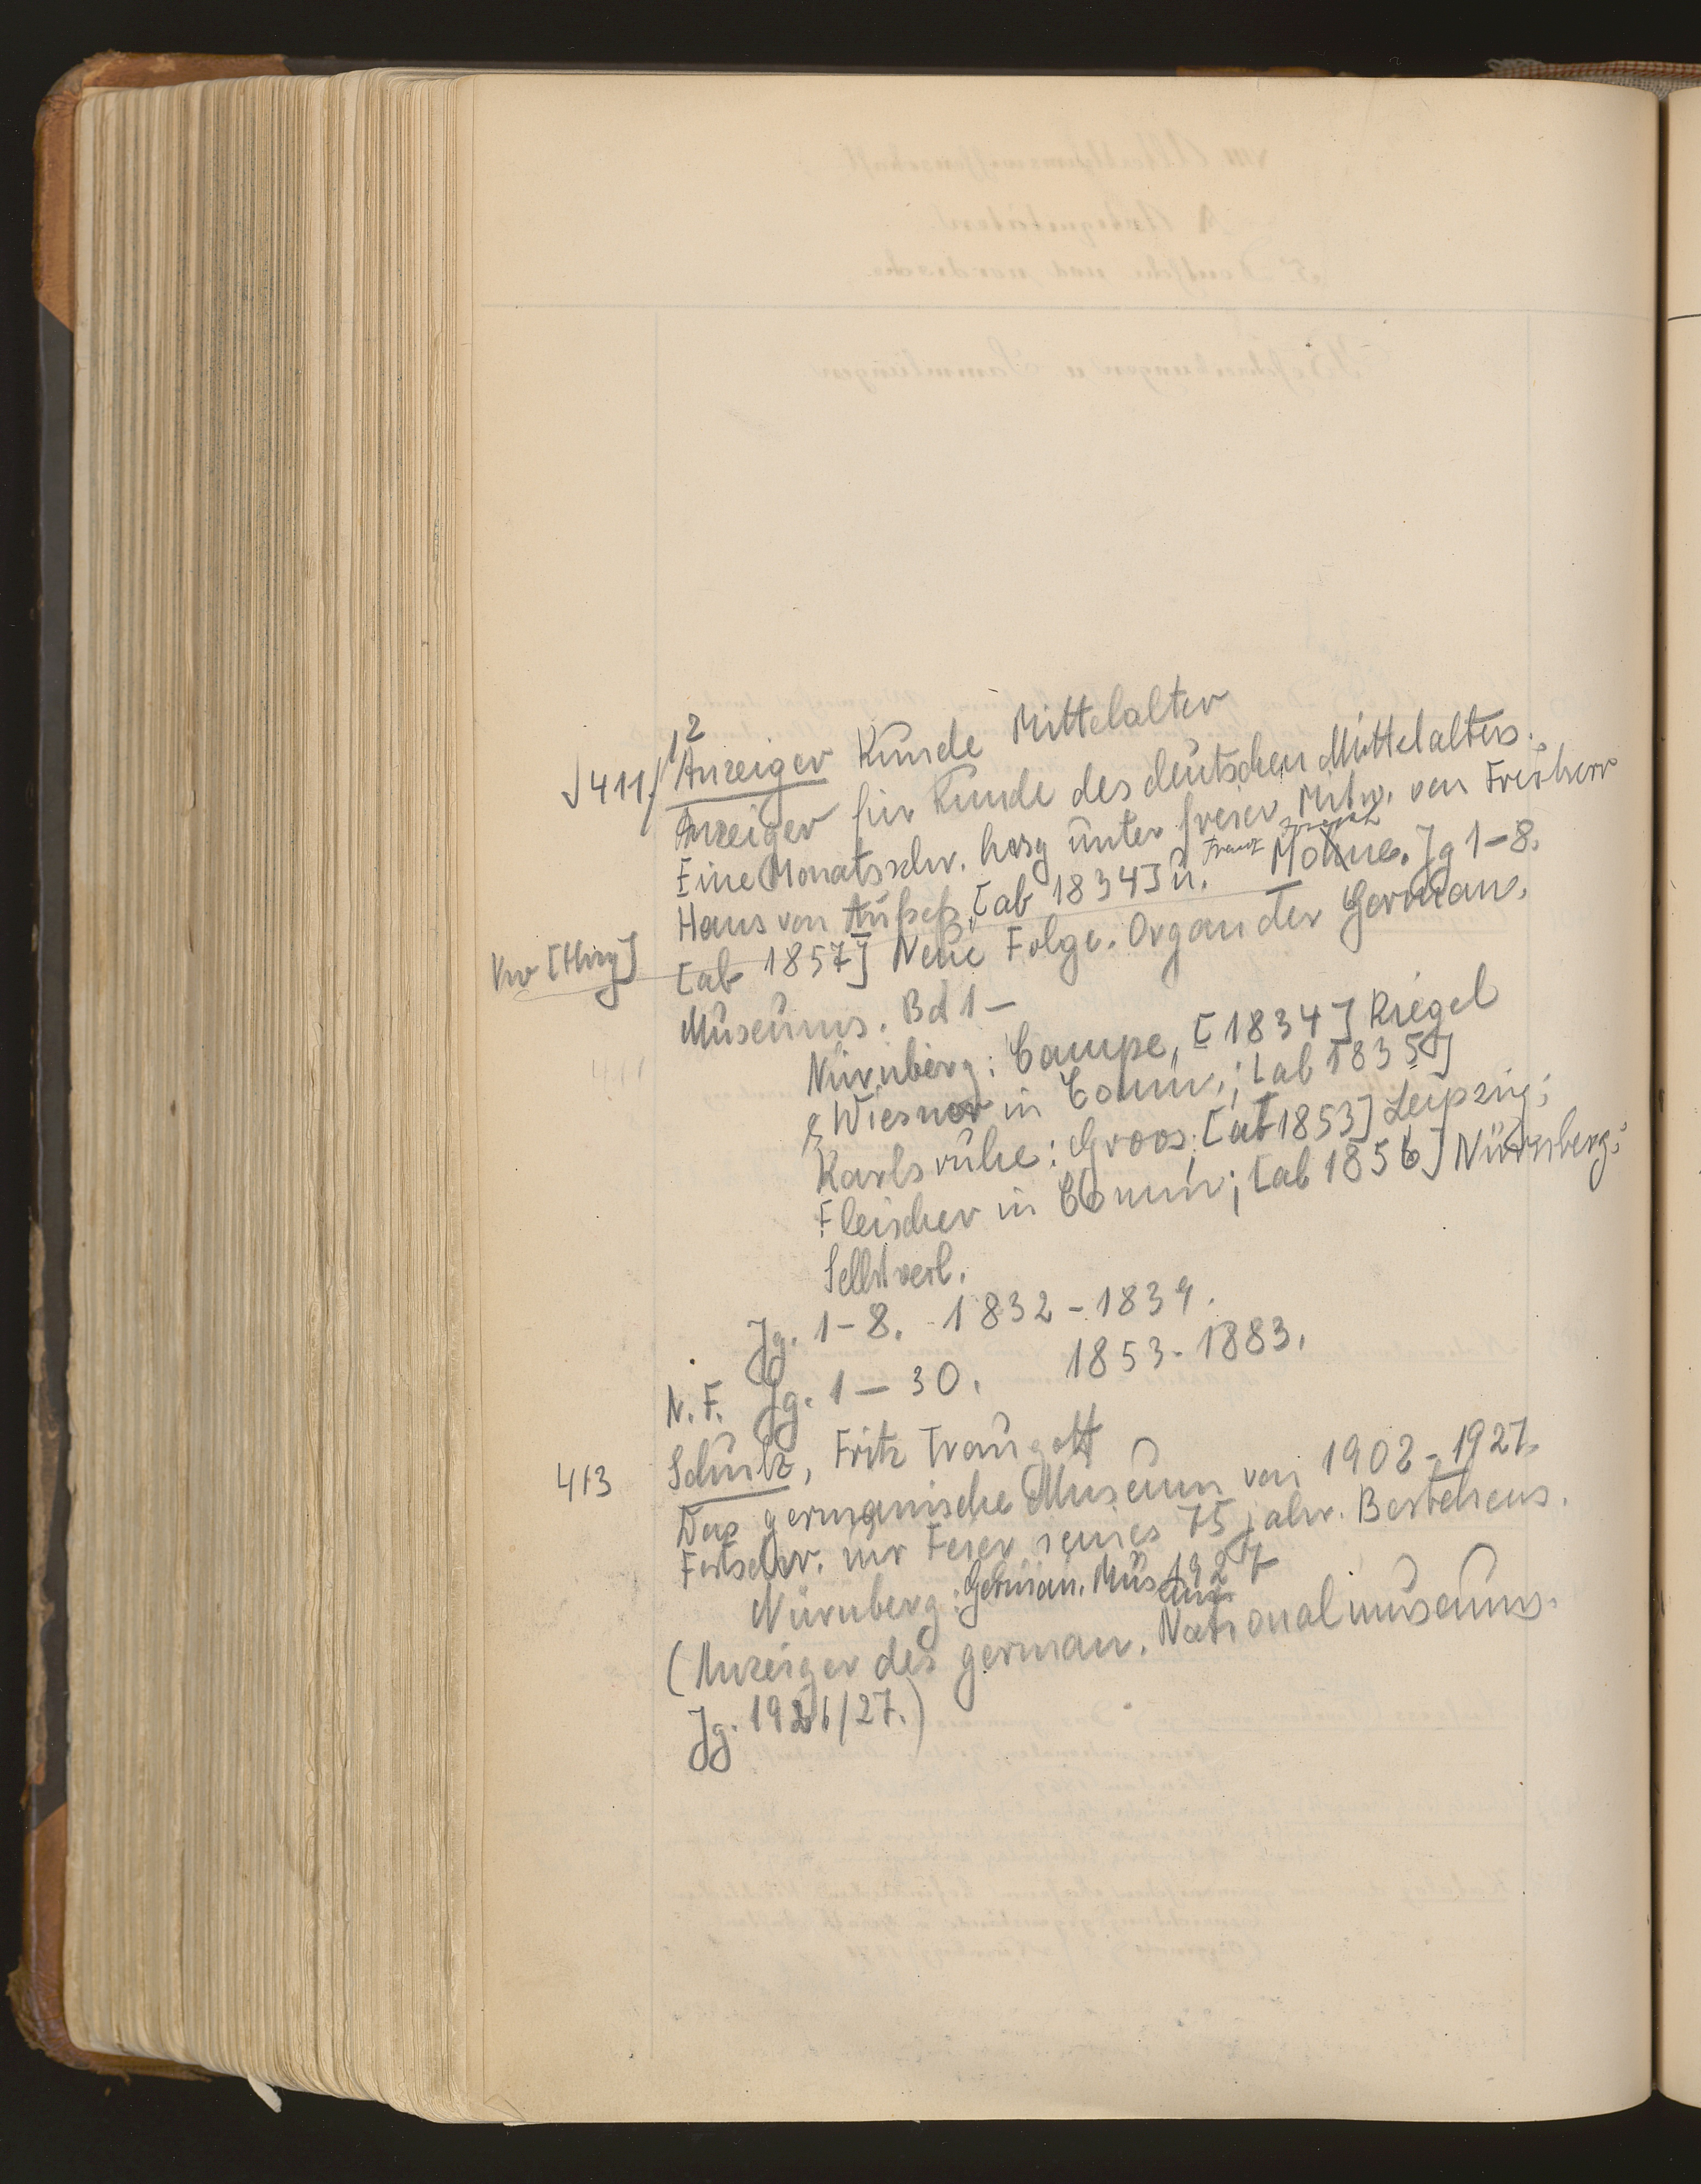 √411/12 Anzeiger Kunde Mittelalter
Anzeiger für Kunde des deutschen Mittelalters.
Eine Monatsschr. hrsg unter freier Mitw. von Freiherr
Hans von Aufseß, [ab 1834] u. Franz Joseph Mone. Jg 1-8.
[ab 1857] Neue Folge. Organ der German.
Museums. Bd 1-
Nürnberg: Campe, [1834] Riegel
& Wiesner in Comm.; [ab 1835]
Karlsruhe: Groos; [ab 1853] Leipzig:
Fleischer in Comm; [ab 1856] Nürnberg:
Selbstverl.
Jg. 1-8. 1832-1839.
N. F. Jg. 1-30. 1853-1883.
413 Schulz, Fritz Traugott
Das germanische Museum von 1902-1927.
Festschr. zur Feier seines 75 jähr. Bestehens.
Nürnberg: German. Museum 1927
(Anzeiger des german. Nationalmuseums.
Jg. 1926/27.)